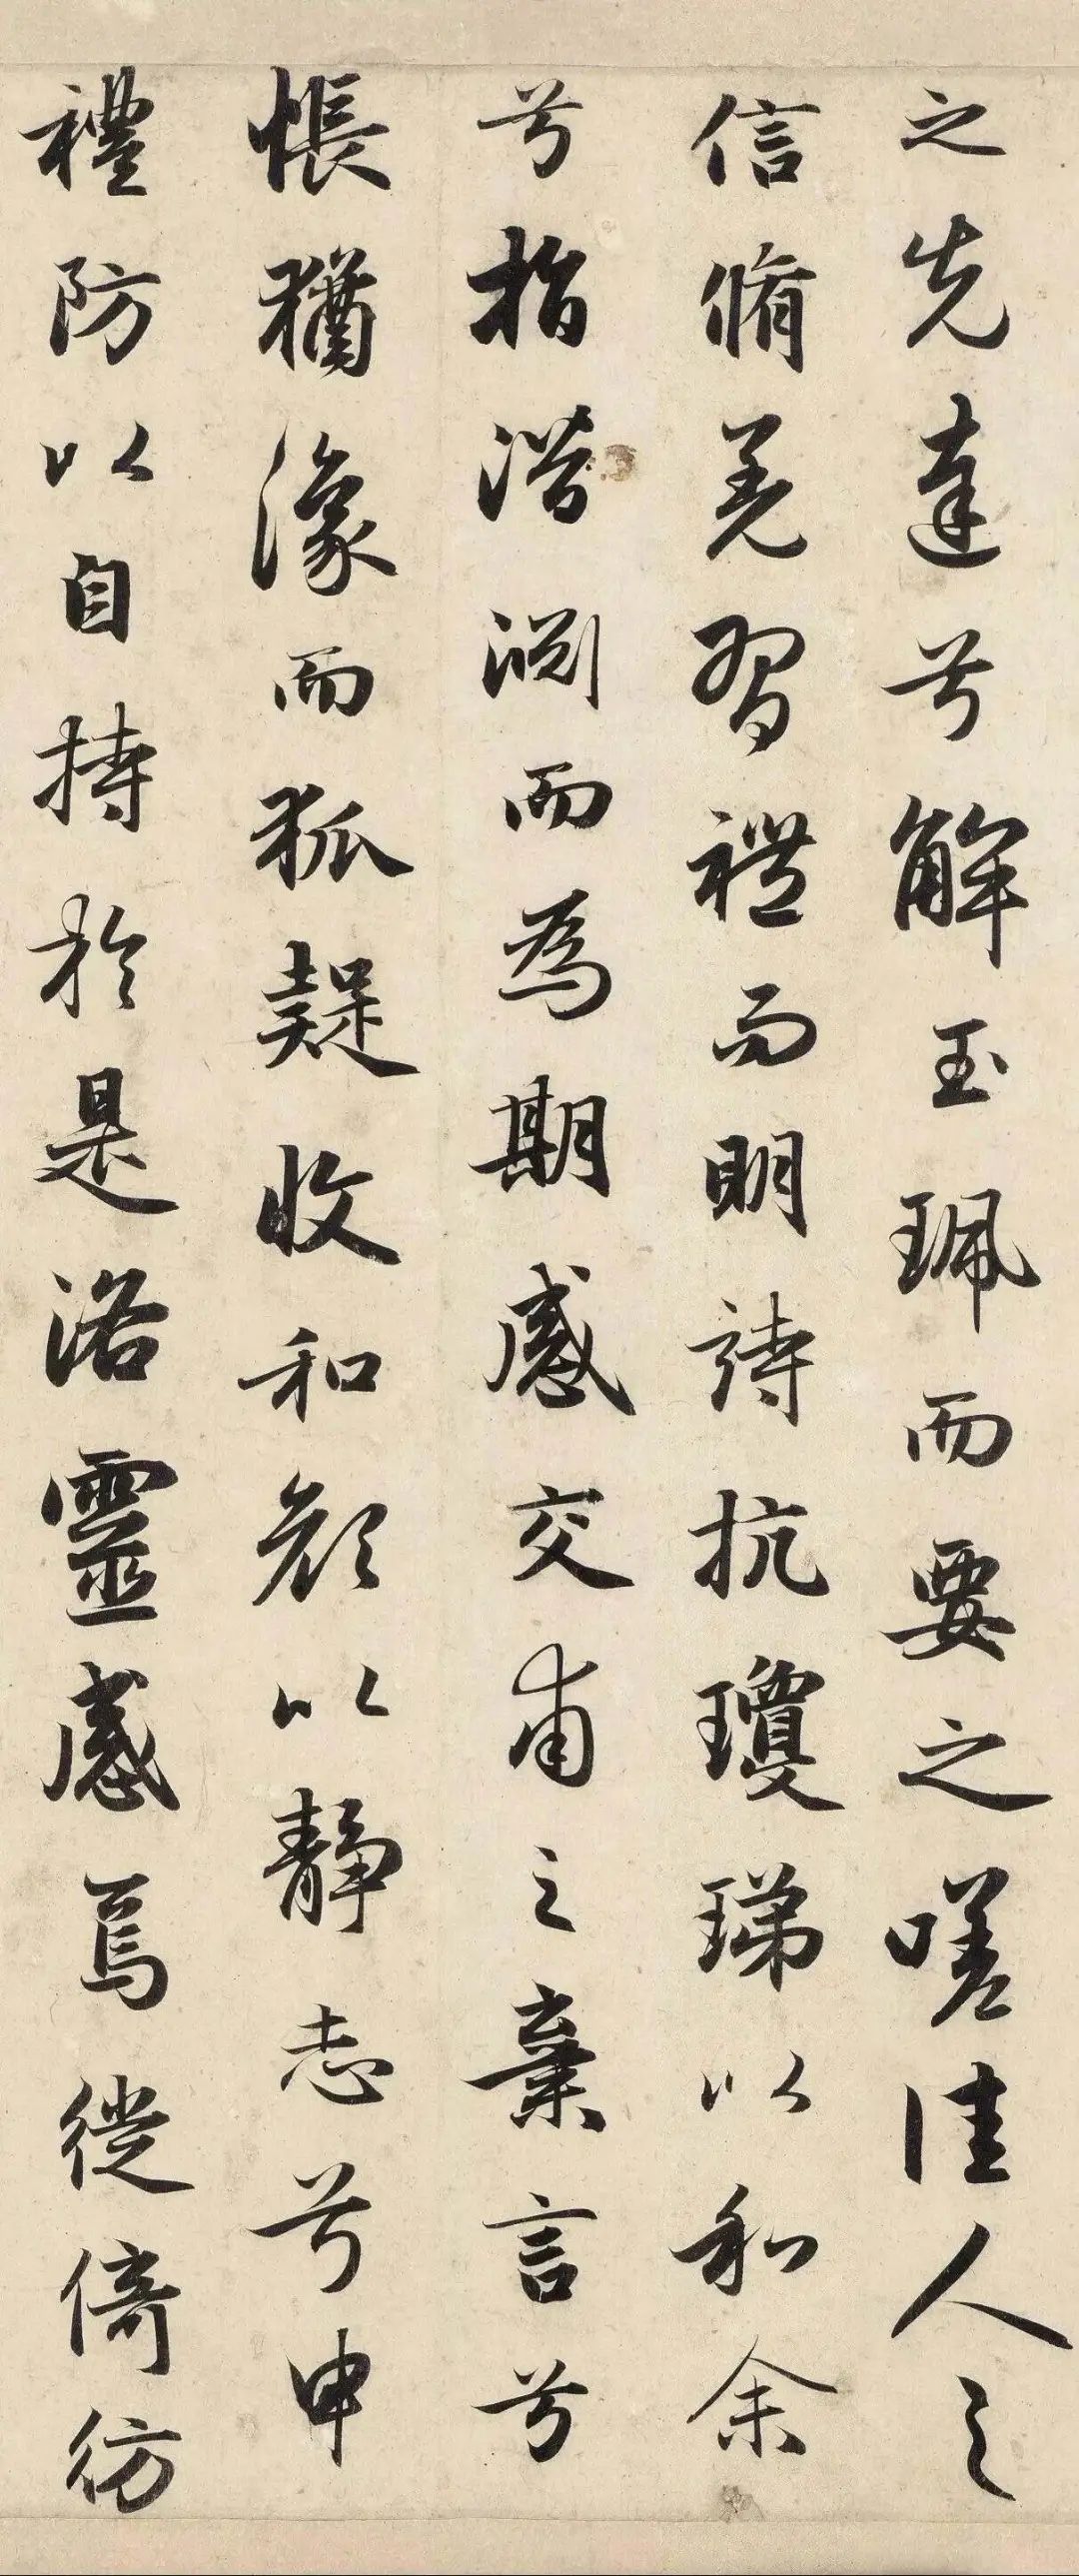 之先達兮解玉珮而要之嗟佳人之
信脩羌習禮而明詩抗瓊珶以和余
兮指潛淵而為期感交甫之棄言兮
悵猶㴿而狐疑收和顏以靜志兮申
禮防以自持於是洛靈感焉徙倚彷